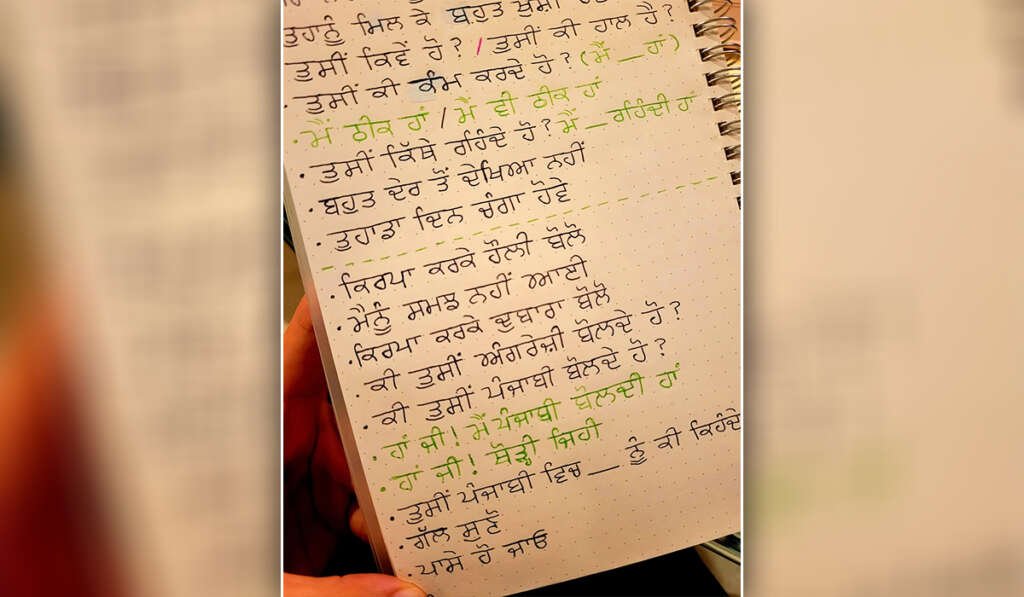 ਤੁਹਾਨੂੰ ਮਿਲ ਕੇ ਬਹੁਤ ਖੁਸ਼ੀ
ਤੁਸੀਂ ਕਿਵੇਂ ਹੋ? / ਤੁਸੀਂ ਕੀ ਹਾਲ ਹੈ?
· ਤੁਸੀਂ ਕੀ ਕੰਮ ਕਰਦੇ ਹੋ? (ਮੈਂ __ ਹਾਂ)
· ਮੈਂ ਠੀਕ ਹਾਂ / ਮੈਂ ਵੀ ਠੀਕ ਹਾਂ
· ਤੁਸੀਂ ਕਿੱਥੇ ਰਹਿੰਦੇ ਹੋ? ਮੈਂ — ਰਹਿੰਦੀ ਹਾਂ
· ਬਹੁਤ ਦੇਰ ਤੋਂ ਦੇਖਿਆ ਨਹੀਂ
· ਤੁਹਾਡਾ ਦਿਨ ਚੰਗਾ ਹੋਵੇ
· ਕਿਰਪਾ ਕਰਕੇ ਹੌਲੀ ਬੋਲੋ
· ਮੈਨੂੰ ਸਮਝ ਨਹੀਂ ਆਈ
· ਕਿਰਪਾ ਕਰਕੇ ਦੁਬਾਰਾ ਬੋਲੋ
· ਕੀ ਤੁਸੀਂ ਅੰਗਰੇਜ਼ੀ ਬੋਲਦੇ ਹੋ?
· ਕੀ ਤੁਸੀਂ ਪੰਜਾਬੀ ਬੋਲਦੇ ਹੋ?
· ਹਾਂ ਜੀ! ਮੈਂ ਪੰਜਾਬੀ ਬੋਲਦੀ ਹਾਂ
· ਹਾਂ ਜੀ! ਥੋੜ੍ਹੀ ਜਿਹੀ
· ਤੁਸੀਂ ਪੰਜਾਬੀ ਵਿਚ __ ਨੂੰ ਕੀ ਕਿਹੰਦੇ
· ਗੱਲ ਸੁਣੋ
· ਪਾਸੇ ਹੋ ਜਾਓ